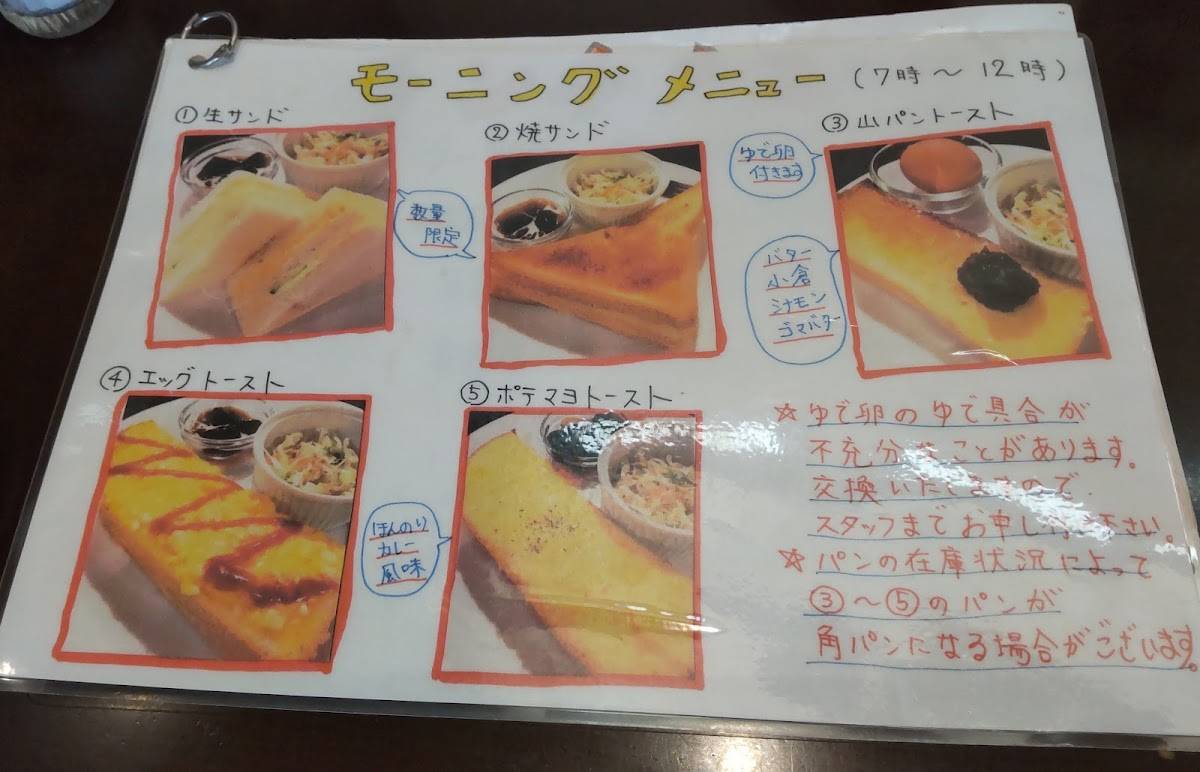 モーニング メニュー (7時～12時)
①生サンド
数量
限定
②焼サンド
③山パントースト
ゆで卵
付きます
バター
小倉
シナモン
ゴマバター
④エッグトースト
⑤ポテマヨトースト
ほんのり
カレー
風味
☆ゆで卵のゆで具合が
不充分なことがあります。
交換いたしますので
スタッフまでお申し付け下さい。
☆パンの在庫状況によって
③～⑤のパンが
角パンになる場合がございます